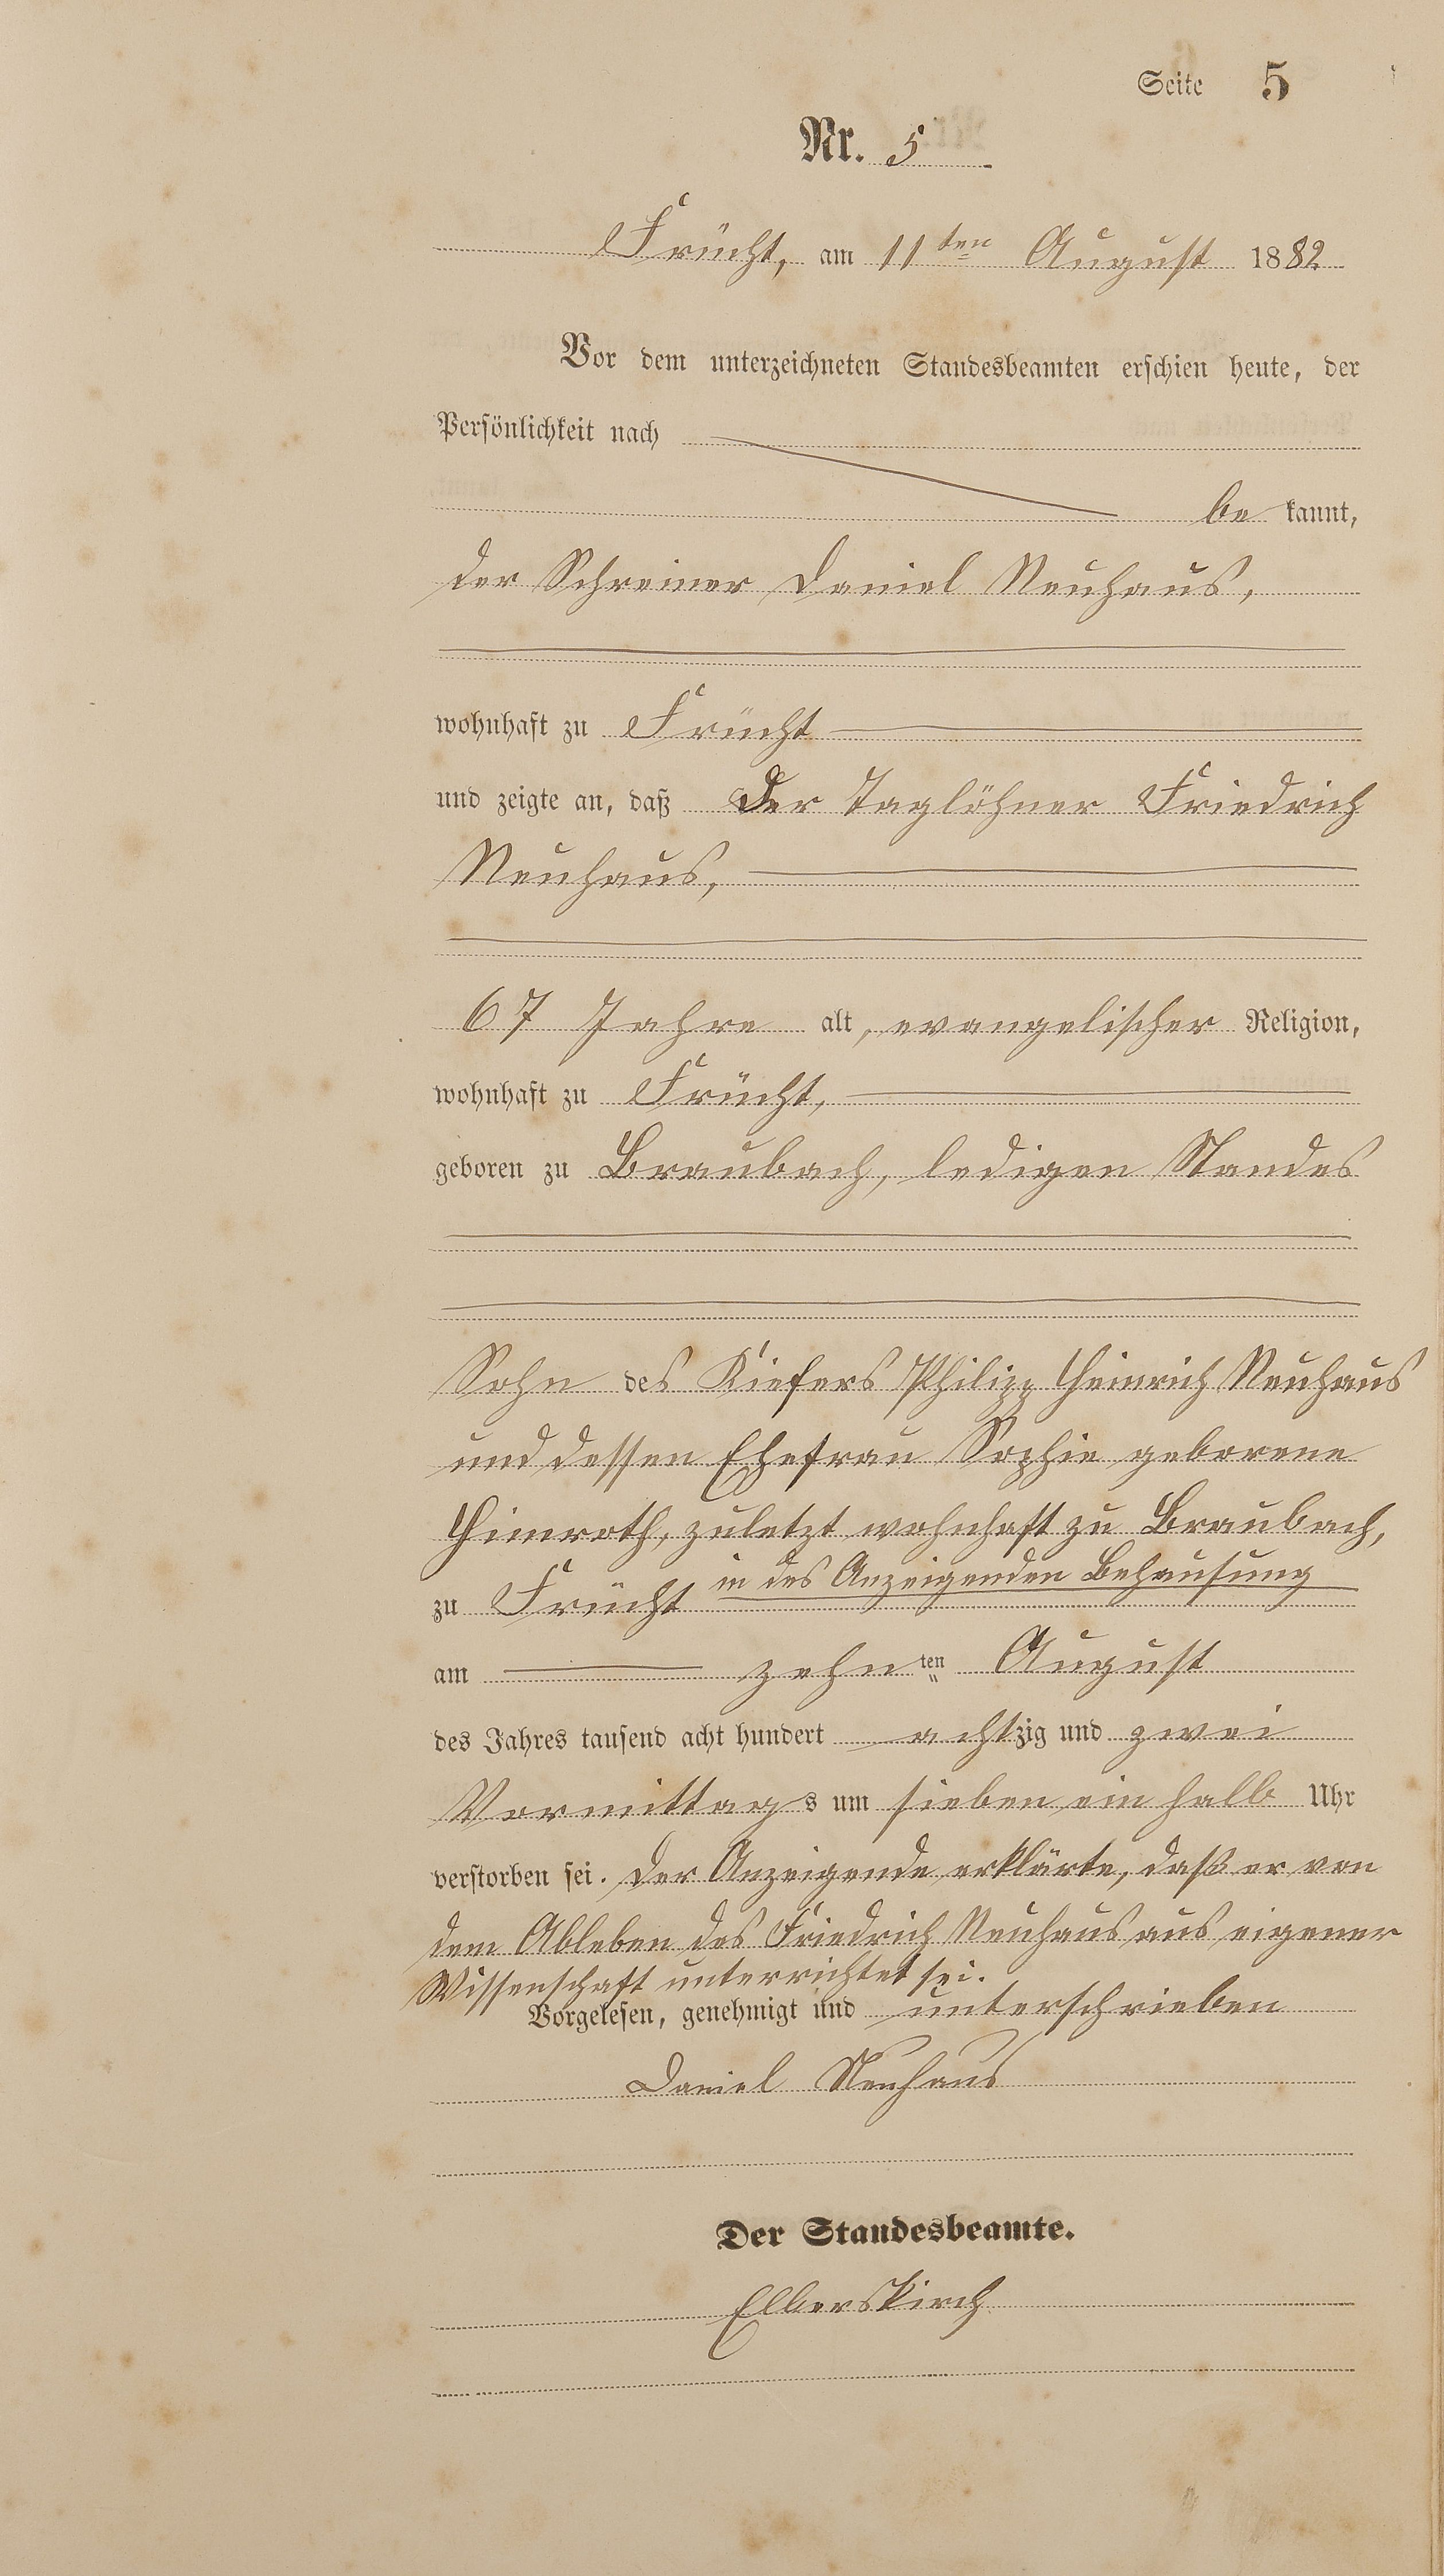 Seite 5
Nr. 5
Frücht, am 11ten August 1882
Vor dem unterzeichneten Standesbeamten erschien heute, der
Persönlichkeit nach
be kannt,
der Schreiner Daniel Neuhaus,
wohnhaft zu Frücht
und zeigte an, daß der Taglöhner Friedrich
Neuhaus,
67 Jahre alt, evangelischer Religion,
wohnhaft zu Frücht,
geboren zu Braubach, ledigen Standes
Sohn des Kiefers Philipp Heinrich Neuhaus
und dessen Ehefrau Sophie geborene
Himroth, zuletzt wohnhaft zu Braubach,
zu Frücht in des Anzeigenden Behausung
am zehn ten August
des Jahres tausend acht hundert achtzig und zwei
Vormittags um sieben ein halb Uhr
verstorben sei. Der Anzeigende erklärte, daß er von
dem Ableben des Friedrich Neuhaus aus eigener
Wissenschaft unterrichtet sei.
Vorgelesen, genehmigt und unterschrieben
Daniel Neuhaus
Der Standesbeamte.
Elberskirch